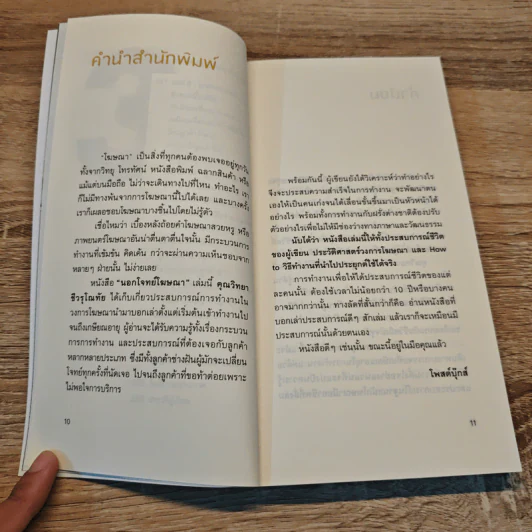 คำนำสำนักพิมพ์
"โฆษณา" เป็นสิ่งที่ทุกคนต้องพบเจออยู่ทุกวัน
ทั้งจากวิทยุ โทรทัศน์ หนังสือพิมพ์ ฉลากสินค้า หรือ
แม้แต่บนมือถือ ไม่ว่าจะเดินทางไปที่ไหน ทำอะไร เรา
ก็ไม่มีทางพ้นจากการโฆษณานี้ไปได้เลย และบางครั้ง
เราก็เผลอชอบโฆษณาบางชิ้นไปโดยไม่รู้ตัว
เชื่อไหมว่า เบื้องหลังถ้อยคำโฆษณาสวยหรู หรือ
ภาพยนตร์โฆษณาอันน่าตื่นตาตื่นใจนั้น มีกระบวนการ
ทำงานที่เข้มข้น คิดเค้น กว่าจะผ่านความเห็นชอบจาก
หลายๆ ฝ่ายนั้น ไม่ง่ายเลย
หนังสือ "นอกโจทย์โฆษณา" เล่มนี้ คุณวิทยา
ชีวรุโณทัย ได้เก็บเกี่ยวประสบการณ์การทำงานใน
วงการโฆษณานำมาบอกเล่าตั้งแต่เริ่มต้นเข้าทำงานไป
จนถึงเกษียณอายุ ผู้อ่านจะได้รับความรู้ทั้งเรื่องกระบวน
การการทำงาน และประสบการณ์ที่ต้องเจอกับลูกค้า
หลากหลายประเภท ซึ่งมีทั้งลูกค้าช่างฝันผู้มักจะเปลี่ยน
โจทย์ทุกครั้งที่นัดเจอ ไปจนถึงลูกค้าที่ขอทำต่อยเพราะ
ไม่พอใจการบริการ
10
พร้อมกันนี้ ผู้เขียนยังได้วิเคราะห์ว่าทำอย่างไร
จึงจะประสบความสำเร็จในการทำงาน จะพัฒนาตน
เองให้เป็นคนเก่งจนได้เลื่อนขั้นขึ้นมาเป็นหัวหน้าได้
อย่างไร พร้อมทั้งการทำงานกับฝรั่งต่างชาติต้องปรับ
ตัวอย่างไรเพื่อไม่ให้มีช่องว่างทางภาษาและวัฒนธรรม
นับได้ว่า หนังสือเล่มนี้ให้ทั้งประสบการณ์ชีวิต
ของผู้เขียน ประวัติศาสตร์วงการโฆษณา และ How
to วิธีทำงานที่นำไปประยุกต์ใช้ได้จริง
การทำงานเพื่อให้ได้ประสบการณ์ชีวิตของแต่
ละคนนั้น ต้องใช้เวลาไม่น้อยกว่า 10 ปีหรือบางคน
อาจมากกว่านั้น ทางลัดที่สั้นกว่าก็คือ อ่านหนังสือที่
บอกเล่าประสบการณ์ดีๆ สักเล่ม แล้วเราก็จะเหมือนมี
ประสบการณ์นั้นด้วยตนเอง
หนังสือดีๆ เช่นนั้น ขณะนี้อยู่ในมือคุณแล้ว
โพสต์บุ๊กส์
11